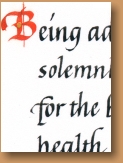 Being ad
solemnl
for the b
health